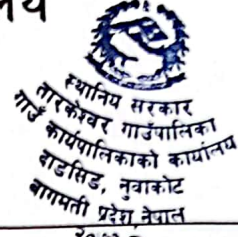 स्थानिय सरकार
तारकेश्वर गाउँपालिका
गाउँ कार्यपालिकाको कार्यालय
दाडसिड, नुवाकोट
बागमती प्रदेश, नेपाल